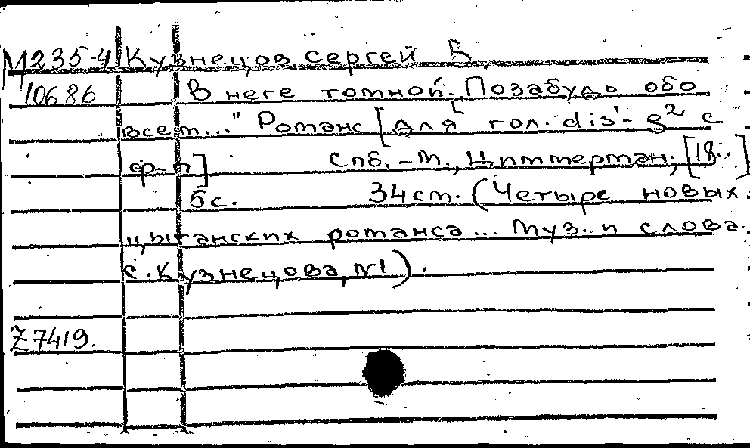 М235-4 Кузнецов Сергей
10686 В неге томной. „Позабудь обо
всем..." Романс [для гол. dis'-g² с
ф-п] Спб.-М., Циммерман, [18..]
5с. 34см. (Четыре новых
цыганских романса... Муз. и слова
С. Кузнецова, №1).
Z7419.